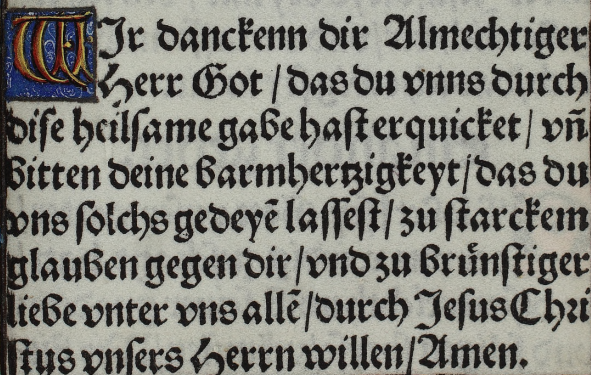 WIr danckenn dir Almechtiger
Herr Got / das du vnns durch
dise heilsame gabe hast erquicket / vn̄
bitten deine barmhertzigkeyt / das du
vns solchs gedeyē lassest / zu starckem
glauben gegen dir / vnd zu brünstiger
liebe vnter vns allē / durch Jesus Chri
stus vnsers Herrn willen / Amen.